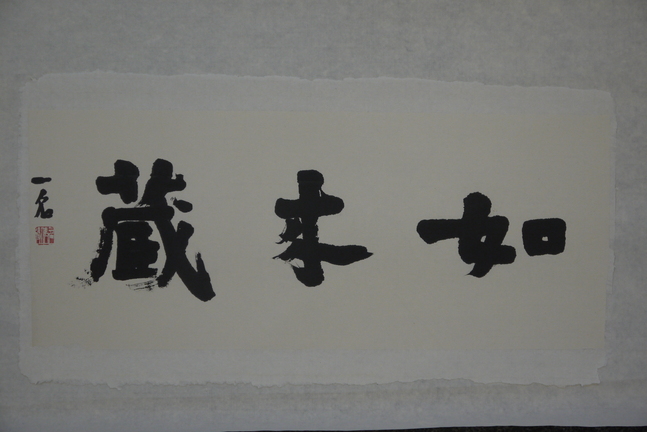 如来蔵
一名